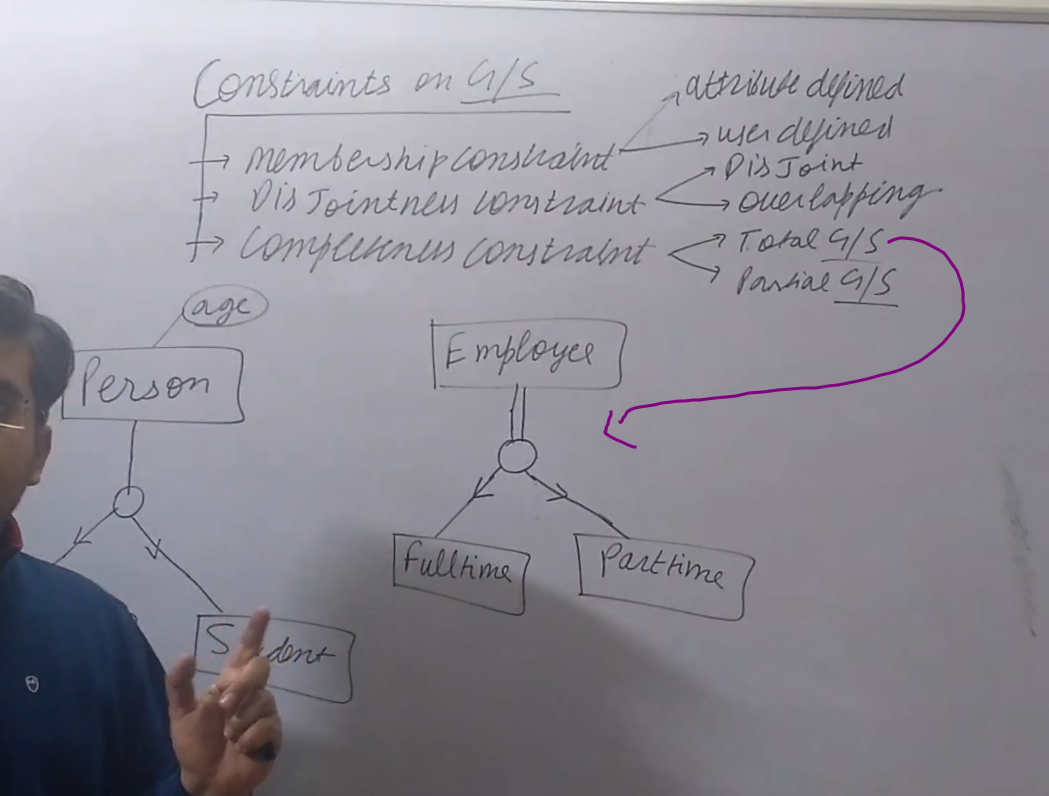 Constraints on G/S
→ Membership constraint → attribute defined
→ user defined
→ DisJointness constraint → DisJoint
→ overlapping
→ Completeness constraint → Total G/S
→ Partial G/S
age
Person
Employee
Fulltime
Parttime